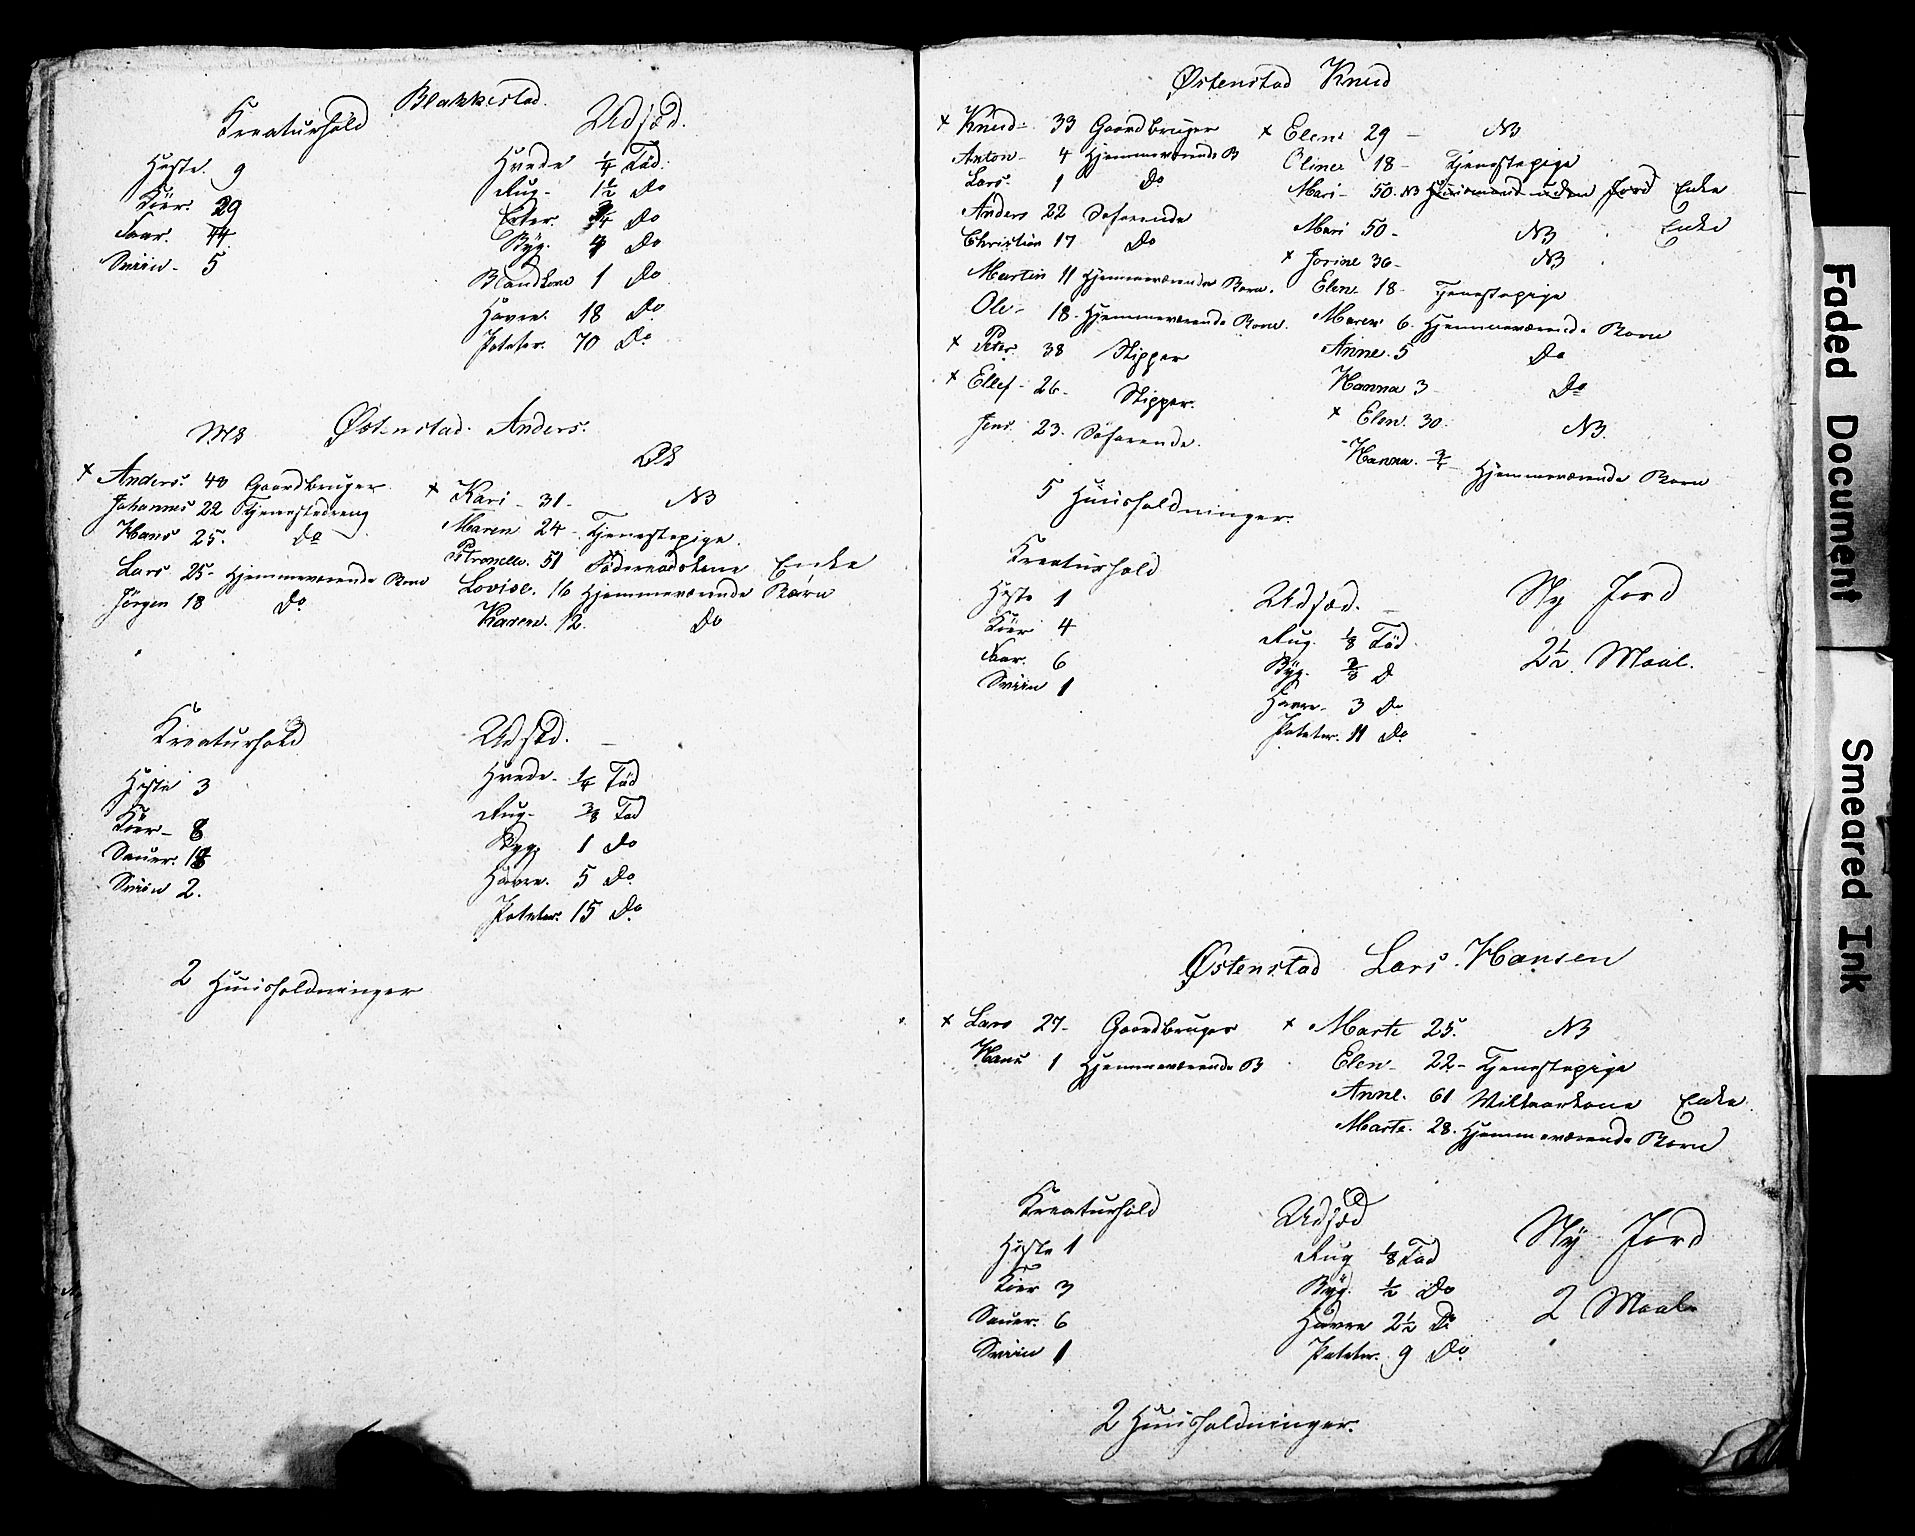 Blakkestad.
Kreaturhold
Heste. 9
Kiör. 29
Faar. 44
Sviin - 5
Udsæd.
Hvede ¼ Tød.
Rug - 1½ Do
Erter. ¾ Do
Byg. 4 Do
Blandkorn 1 Do
Havre. 18 Do
Poteter. 70 Do
Østenstad. Anders.
Mk
× Anders. 48 Gaardbruger
Johannes 22 Tjenestedreng
Hans 25. Do
Lars 25 - Hjemmeværende Børn
Jørgen 18 Do
Qk
× Kari - 31 - NB
Maren 24 - Tjenestepige.
Petronelle. 51 Föderaadskone Enke
Lovise. 16 Hjemmeværende Børn
Karen. 12. Do
Kreaturhold
Heste 3
Kiör - 8
Sauer. 18
Sviin 2.
Udsæd. -
Hvede - ¼ Tød
Rug - ⅜ Tød
Byg 1 Do
Havre. 5 Do
Poteter. 15 Do
2 Huusholdninger
Østenstad Knud
× Knud - 33 Gaardbruger
Anton - 4 Hjemmeværende B
Lars. 1 Do
Anders 22 Søfarende
Christian 17 Do
Martin 11 Hjemmeværende Børn.
Ole - 18 - Hjemmeværende Børn.
× Peter. 38 Skipper
× Ellef - 26 - Skipper.
Jens. 23. Søfarende.
× Elen 29 - NB
Oline 18 - Tjenestepige
Mari - 50. NB Huusmand uden Jord Enke
Mari 50 - NB Enke
× Josine 36 - NB
Elen 18 - Tjenestepige
Maren 6. Hjemmeværende Børn
Anne. 5 Do
Hanna 3 Do
× Elen. 30. NB.
Hanna. ¾ - Hjemmeværende Børn
5 Huusholdninger.
Kreaturhold
Heste 1
Kiör 4
Faar. 6
Sviin 1
Udsæd. -
Rug. ⅛ Tød.
Byg. ⅜ D
Havre - 3 Do
Poteter. 11 Do
Ny Jord
2½ Maal.
Østenstad Lars Hansen
× Lars 27 - Gaardbruger
Hans 1 Hjemmeværende B
× Marte 25. NB
Elen - 22 - Tjenestepige
Anne. 61 Wilkaarkone Enke.
Marte. 28. Hjemmeværende Børn
Kreaturhold
Heste 1
Kiör 3
Sauer. 6
Sviin 1
Udsæd
Rug ⅛ Tød
Byg. ½ Do
Havre 2½ Do
Poteter. 9 Do
Ny Jord
2 Maal
2 Huusholdninger.
Faded Document
Smeared Ink